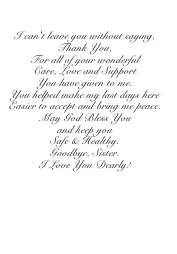 I can't leave you without saying,
Thank You,
For all of your wonderful
Care, Love and Support
You have given to me.
You helped make my last days here
Easier to accept and bring me peace.
May God Bless You
and keep you
Safe & Healthy.
Goodbye, Sister.
I Love You Dearly!